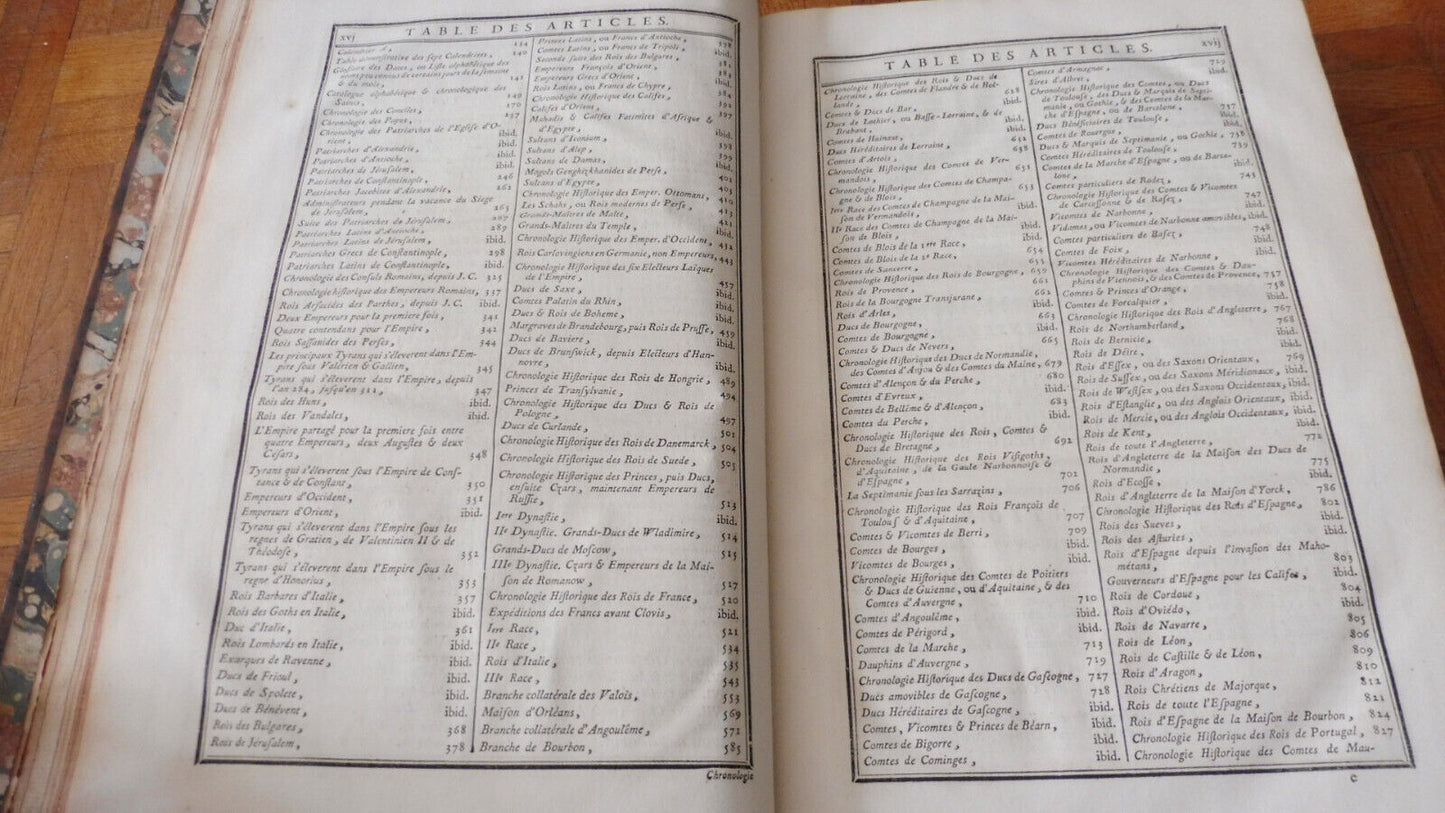 xvj TABLE DES ARTICLES.
Calendrier A, 134
Table démonstrative des sept Calendriers, 140
Glossaire des Dates, ou Liste alphabétique des
noms peu connus de certains jours de la semaine
& du mois, 141
Catalogue alphabétique & chronologique des
Saints, 149
Chronologie des Conciles, 170
Chronologie des Papes, 237
Chronologie des Patriarches de l'Eglise d'O-
rient, ibid.
Patriarches d'Alexandrie, ibid.
Patriarches d'Antioche, ibid.
Patriarches de Jérusalem, ibid.
Patriarches de Constantinople, 246
Patriarches Jacobites d'Alexandrie, 262
Administrateurs pendant la vacance du Siége
de Jérusalem, 265
Suite des Patriarches de Jérusalem, 287
Patriarches Latins d'Antioche, 289
Patriarches Latins de Jérusalem, ibid.
Patriarches Grecs de Constantinople, 298
Patriarches Latins de Constantinople, ibid.
Chronologie des Consuls Romains, depuis J. C. 325
Chronologie historique des Empereurs Romains, 337
Rois Arsacides des Parthes, depuis J. C. ibid.
Deux Empereurs pour la premiere fois, 341
Quatre contendans pour l'Empire, 342
Rois Sassanides des Perses, 344
Les principaux Tyrans qui s'éleverent dans l'Em-
pire sous Valérien & Gallien, 345
Tyrans qui s'éleverent dans l'Empire, depuis
l'an 284, jusqu'en 311, 347
Rois des Huns, ibid.
Rois des Vandales, ibid.
L'Empire partagé pour la premiere fois entre
quatre Empereurs, deux Augustes & deux
Césars, 348
Tyrans qui s'éleverent sous l'Empire de Cons-
tance & de Constant, 350
Empereurs d'Occident, 351
Empereurs d'Orient, ibid.
Tyrans qui s'éleverent dans l'Empire sous les
regnes de Gratien, de Valentinien II & de
Théodose, 352
Tyrans qui s'éleverent dans l'Empire sous le
regne d'Honorius, 353
Rois Barbares d'Italie, 357
Rois des Goths en Italie, ibid.
Duc d'Italie, 361
Rois Lombards en Italie, ibid.
Exarques de Ravenne, ibid.
Ducs de Frioul, ibid.
Ducs de Spolete, ibid.
Ducs de Bénévent, ibid.
Rois des Bulgares, 368
Rois de Jérusalem, 378
Princes Latins, ou Francs d'Antioche, 378
Comtes Latins, ou Francs de Tripoli, ibid.
Seconde suite des Rois des Bulgares, 381
Empereurs François d'Orient, 383
Empereurs Grecs d'Orient, ibid.
Rois Latins, ou Francs de Chypre, 384
Chronologie Historique des Califes, 392
Califes d'Orient, 397
Mahadis & Califes Fatimites d'Afrique &
d'Egypte, ibid.
Sultans d'Iconium, 398
Sultans d'Alep, 399
Sultans de Damas, ibid.
Mogols Genghizkhanides de Perse, 402
Sultans d'Egypte, 403
Chronologie Historique des Emper. Ottomans, 410
Les Schahs, ou Rois modernes de Perse, 413
Grands-Maîtres de Malte, 421
Grands-Maîtres du Temple, ibid.
Chronologie Historique des Emper. d'Occident, 432
Rois Carlovingiens en Germanie, non Empereurs, 443
Chronologie Historique des six Electeurs Laïques
de l'Empire, 457
Ducs de Saxe, ibid.
Comtes Palatin du Rhin, ibid.
Ducs & Rois de Boheme, ibid.
Margraves de Brandebourg, puis Rois de Prusse, 459
Ducs de Baviere, ibid.
Ducs de Brunswick, depuis Electeurs d'Han-
novre, ibid.
Chronologie Historique des Rois de Hongrie, 489
Princes de Transylvanie, 494
Chronologie Historique des Ducs & Rois de
Pologne, 497
Ducs de Curlande, 501
Chronologie Historique des Rois de Danemarck, 504
Chronologie Historique des Rois de Suede, 505
Chronologie Historique des Princes, puis Ducs,
ensuite Czars, maintenant Empereurs de
Russie, 513
Iere Dynastie, ibid.
IIe Dynastie. Grands-Ducs de Wladimire, 514
Grands-Ducs de Moscow, 515
IIIe Dynastie. Czars & Empereurs de la Mai-
son de Romanow, 517
Chronologie Historique des Rois de France, 520
Expéditions des Francs avant Clovis, ibid.
Iere Race, 521
IIe Race, 534
Rois d'Italie, 535
IIIe Race, 543
Branche collatérale des Valois, 553
Maison d'Orléans, 569
Branche collatérale d'Angoulême, 571
Branche de Bourbon, 585
Chronologie
TABLE DES ARTICLES. xvij
Chronologie Historique des Rois & Ducs de
Lorraine, des Comtes de Flandre & de Hol-
lande, 628
Comtes & Ducs de Bar, ibid.
Ducs de Lothier, ou Basse-Lorraine, & de
Brabant, ibid.
Comtes de Hainaut, ibid.
Ducs Héréditaires de Lorraine, 632
Comtes d'Artois, 638
Chronologie Historique des Comtes de Ver-
mandois, 651
Chronologie Historique des Comtes de Champa-
gne & de Blois, 653
Iere Race des Comtes de Champagne de la Mai-
son de Vermandois, ibid.
IIe Race des Comtes de Champagne de la Mai-
son de Blois, ibid.
Comtes de Blois de la 1ere Race, ibid.
Comtes de Blois de la 2e Race, 654
Comtes de Sancerre, 655
Chronologie Historique des Rois de Bourgogne, 659
Rois de Provence, 661
Rois de la Bourgogne Transjurane, 661
Rois d'Arles, ibid.
Ducs de Bourgogne, 663
Comtes de Bourgogne, ibid.
Comtes & Ducs de Nevers, 665
Chronologie Historique des Ducs de Normandie,
des Comtes d'Anjou & des Comtes du Maine, 679
Comtes d'Alençon & du Perche, 680
Comtes d'Evreux, ibid.
Comtes de Bellême & d'Alençon, 683
Comtes du Perche, ibid.
Chronologie Historique des Rois, Comtes &
Ducs de Bretagne, 692
Chronologie Historique des Rois Visigoths,
d'Aquitaine, de la Gaule Narbonnoise &
d'Espagne, 701
La Septimanie sous les Sarrazins, 706
Chronologie Historique des Rois François de
Toulouse & d'Aquitaine, 707
Comtes & Vicomtes de Berri, 709
Comtes de Bourges, ibid.
Vicomtes de Bourges, ibid.
Chronologie Historique des Comtes de Poitiers
& Ducs de Guienne, ou d'Aquitaine, & des
Comtes d'Auvergne, 710
Comtes d'Angoulême, ibid.
Comtes de Périgord, ibid.
Comtes de la Marche, 713
Dauphins d'Auvergne, 719
Chronologie Historique des Ducs de Gascogne, 727
Ducs amovibles de Gascogne, 728
Ducs Héréditaires de Gascogne, ibid.
Comtes, Vicomtes & Princes de Béarn, ibid.
Comtes de Bigorre, ibid.
Comtes de Cominges, ibid.
Comtes d'Armagnac, 729
Sires d'Albret, ibid.
Chronologie Historique des Comtes, ou Ducs
de Toulouse, des Ducs & Marquis de Septi-
manie, ou Gothie, & des Comtes de la Mar-
che d'Espagne, ou de Barcelone, 737
Ducs Bénéficiaires de Toulouse, ibid.
Comtes de Rouergue, ibid.
Ducs & Marquis de Septimanie, ou Gothie, 738
Comtes Héréditaires de Toulouse, 739
Comtes de la Marche d'Espagne, ou de Barce-
lone, 743
Comtes particuliers de Rodez,
Chronologie Historique des Comtes & Vicomtes
de Carcassonne & de Rasez, 747
Vicomtes de Narbonne, ibid.
Vidames, ou Vicomtes de Narbonne amovibles, ibid.
Comtes particuliers de Rasez, 748
Comtes de Foix, ibid.
Vicomtes Héréditaires de Narbonne, ibid.
Chronologie Historique des Comtes & Dau-
phins de Viennois, & des Comtes de Provence, 757
Comtes & Princes d'Orange, 758
Comtes de Forcalquier, ibid.
Chronologie Historique des Rois d'Angleterre, 767
Rois de Northumberland, 768
Rois de Bernicie, ibid.
Rois de Déire, ibid.
Rois d'Essex, ou des Saxons Orientaux, 769
Rois de Sussex, ou des Saxons Méridionaux, ibid.
Rois de Westsex, ou des Saxons Occidentaux, ibid.
Rois d'Estanglie, ou des Anglois Orientaux, ibid.
Rois de Mercie, ou des Anglois Occidentaux, ibid.
Rois de Kent, ibid.
Rois de toute l'Angleterre, 772
Rois d'Angleterre de la Maison des Ducs de
Normandie, 775
Rois d'Ecosse, ibid.
Rois d'Angleterre de la Maison d'Yorck, 786
Chronologie Historique des Rois d'Espagne, 802
Rois des Sueves, ibid.
Rois des Asturies, ibid.
Rois d'Espagne depuis l'invasion des Maho-
métans, 803
Gouverneurs d'Espagne pour les Califes, ibid.
Rois de Cordoue, 804
Rois d'Oviédo, ibid.
Rois de Navarre, 805
Rois de Léon, 806
Rois de Castille & de Léon, 809
Rois d'Aragon, 810
Rois Chrétiens de Majorque, 812
Rois de toute l'Espagne, 821
Rois d'Espagne de la Maison de Bourbon, 824
Chronologie Historique des Rois de Portugal, 827
Chronologie Historique des Comtes de Mau-
c